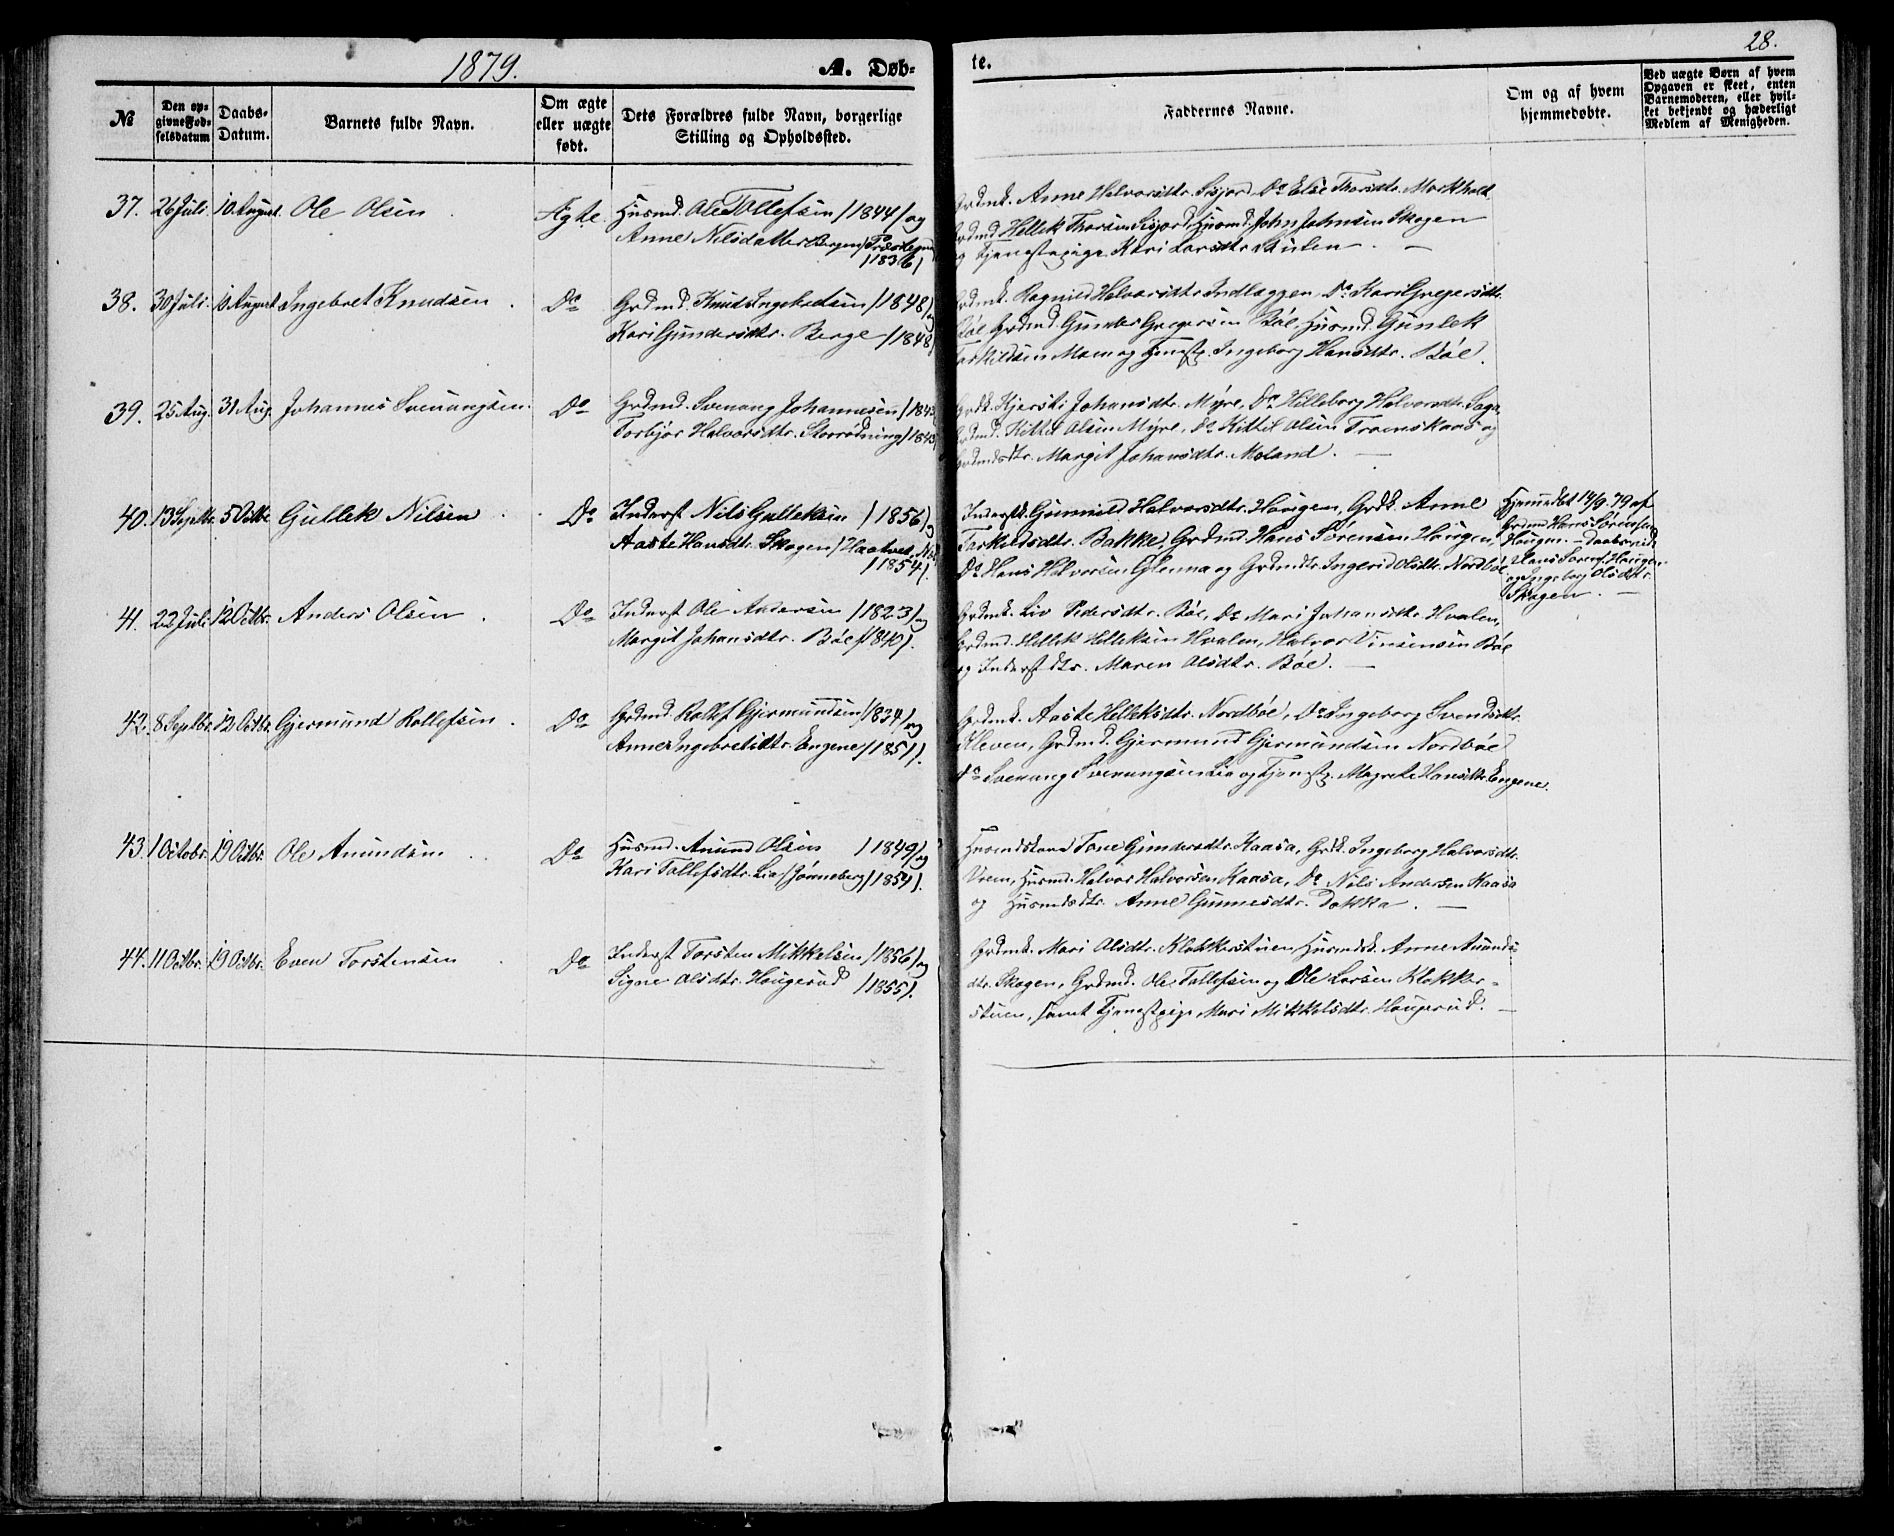 1879. A. Døb-
te. 28.
№
Den op-
givne Fød-
selsdatum
Daabs-
Datum.
Barnets fulde Navn.
Om ægte
eller uægte
født.
Dets Forældres fulde Navn, borgerlige
Stilling og Opholdssted.
Faddernes Navne.
Om og af hvem
hjemmedøbte.
Ved uægte Børn af hvem
Opgaven er skeet, enten
Barnemoderen, eller hvil-
ket bekjendt og hæderligt
Medlem af Menigheden.
37. 26 Juli. 10 August. Ole Olsen Ægte. Husmd. Ole Tollefsen /1844/ og
Anne Nilsdatter Bergen
/1836/
Grdmk. Anne Halvorsdtr. Do Else Thorsdtr.
Grdmd Hellek Thorsen Husmd. John Johnsen Skogen
og Tjenestepige Kari Larsdtr.
38. 30 Juli. 10 August Ingebret Knudsen Do Grdmd. Knud Ingebretsen /1848/ og
Kari Gundersdtr. Berge /1848/
Grdmk. Ragnild Halvorsdtr Indlæggen, Do Kari Gregersdtr.
Bøe, Grdmd. Gunder Gregersen Bøe, Husmd. Gunlek
Torkildsen Moen og Tjenstp. Ingeborg Hansdtr. Bøe.
39. 25 Aug. 31 Aug. Johannes Svenungsen. Do Grdmd. Svenung Johannesen
Torbjør Halvorsdtr.
Grdk. Kjersti Johansdtr. Myre, Do Hilleborg Halvorsdtr.
Grdmd. Kittil Olsen Myre, Do Kittil Olsen og
Grdmdsdtr. Margit Johansdtr. Moland.
40. 13 Septbr. 5 Octbr Gullek Nilsen Do Inderst Nils Gulleksen /1856/ og
Aaste Hansdtr. Skogen
/1854/.
Inderstk. Gunnild Halvorsdtr. Haugen, Grdk. Anne
Torkildsdtr. Bakke, Grdmd Hans Sørensen Haugen,
Do Hans Halvorsen Glenna og Grdmdtr. Ingerid Olsdtr. Nordbøe
Hjemmedbt 14/9 79 af
Grdmd Hans Sørensen
Haugen. –
Hans Haugen
og Ingeborg Olsdtr.
Skogen.
41. 22 Juli 12 Octbr. Anders Olsen Do Inderst Ole Andersen /1823/ og
Margit Johansdtr. Bøe /1840/.
Grdmk. Liv Pedersdtr. Bøe, Do Mari Johansdtr. Hvalen,
Grdmd. Hellek Helleksen Hvalen, Halvor Vinsensen Bøe
og Inderstdtr. Maren Olsdtr. Bøe.
42. 8 Septbr. 12 Octbr. Gjermund Rollefsen Do Grdmd. Rollef Gjermundsen /1834/ og
Anne Ingebretsdtr. Engene /1851/.
Grdmk. Aaste Helleksdtr. Nordbøe, Do Ingeborg Svendsdtr.
Kleven, Grdmd. Gjermund Gjermundsen Nordbøe
Do Svenung Svenungsen Lia og Tjenstp. Margrete Hansdtr. Engene.
43. 1 Octobr. 19 Octbr. Ole Anundsen Do Husmd. Anund Olsen /1849/ og
Kari Tollefsdtr. Lia
Tone Gundersdtr. Kaasa, Grdk. Ingeborg Halvorsdtr.
Vrem, Husmd. Halvor Halvorsen Kaasa, Do Nils Andersen Kaasa
og Husmdsdtr. Anne Gunnesdtr. Dokka.
44. 11 Octbr. 19 Octbr. Even Torstensen Do Inderst Torsten Mikkelsen /1856/ og
Signe Olsdtr. Haugerud /1855/.
Grdmk. Mari Olsdtr. Klokkerstuen, Husmdk. Anne Anunds-
dtr. Skogen, Grdmd. Ole Tollefsen og Ole Larsen Klokker-
stuen, samt Tjenestpige Mari Mikkelsdtr. Haugerud.